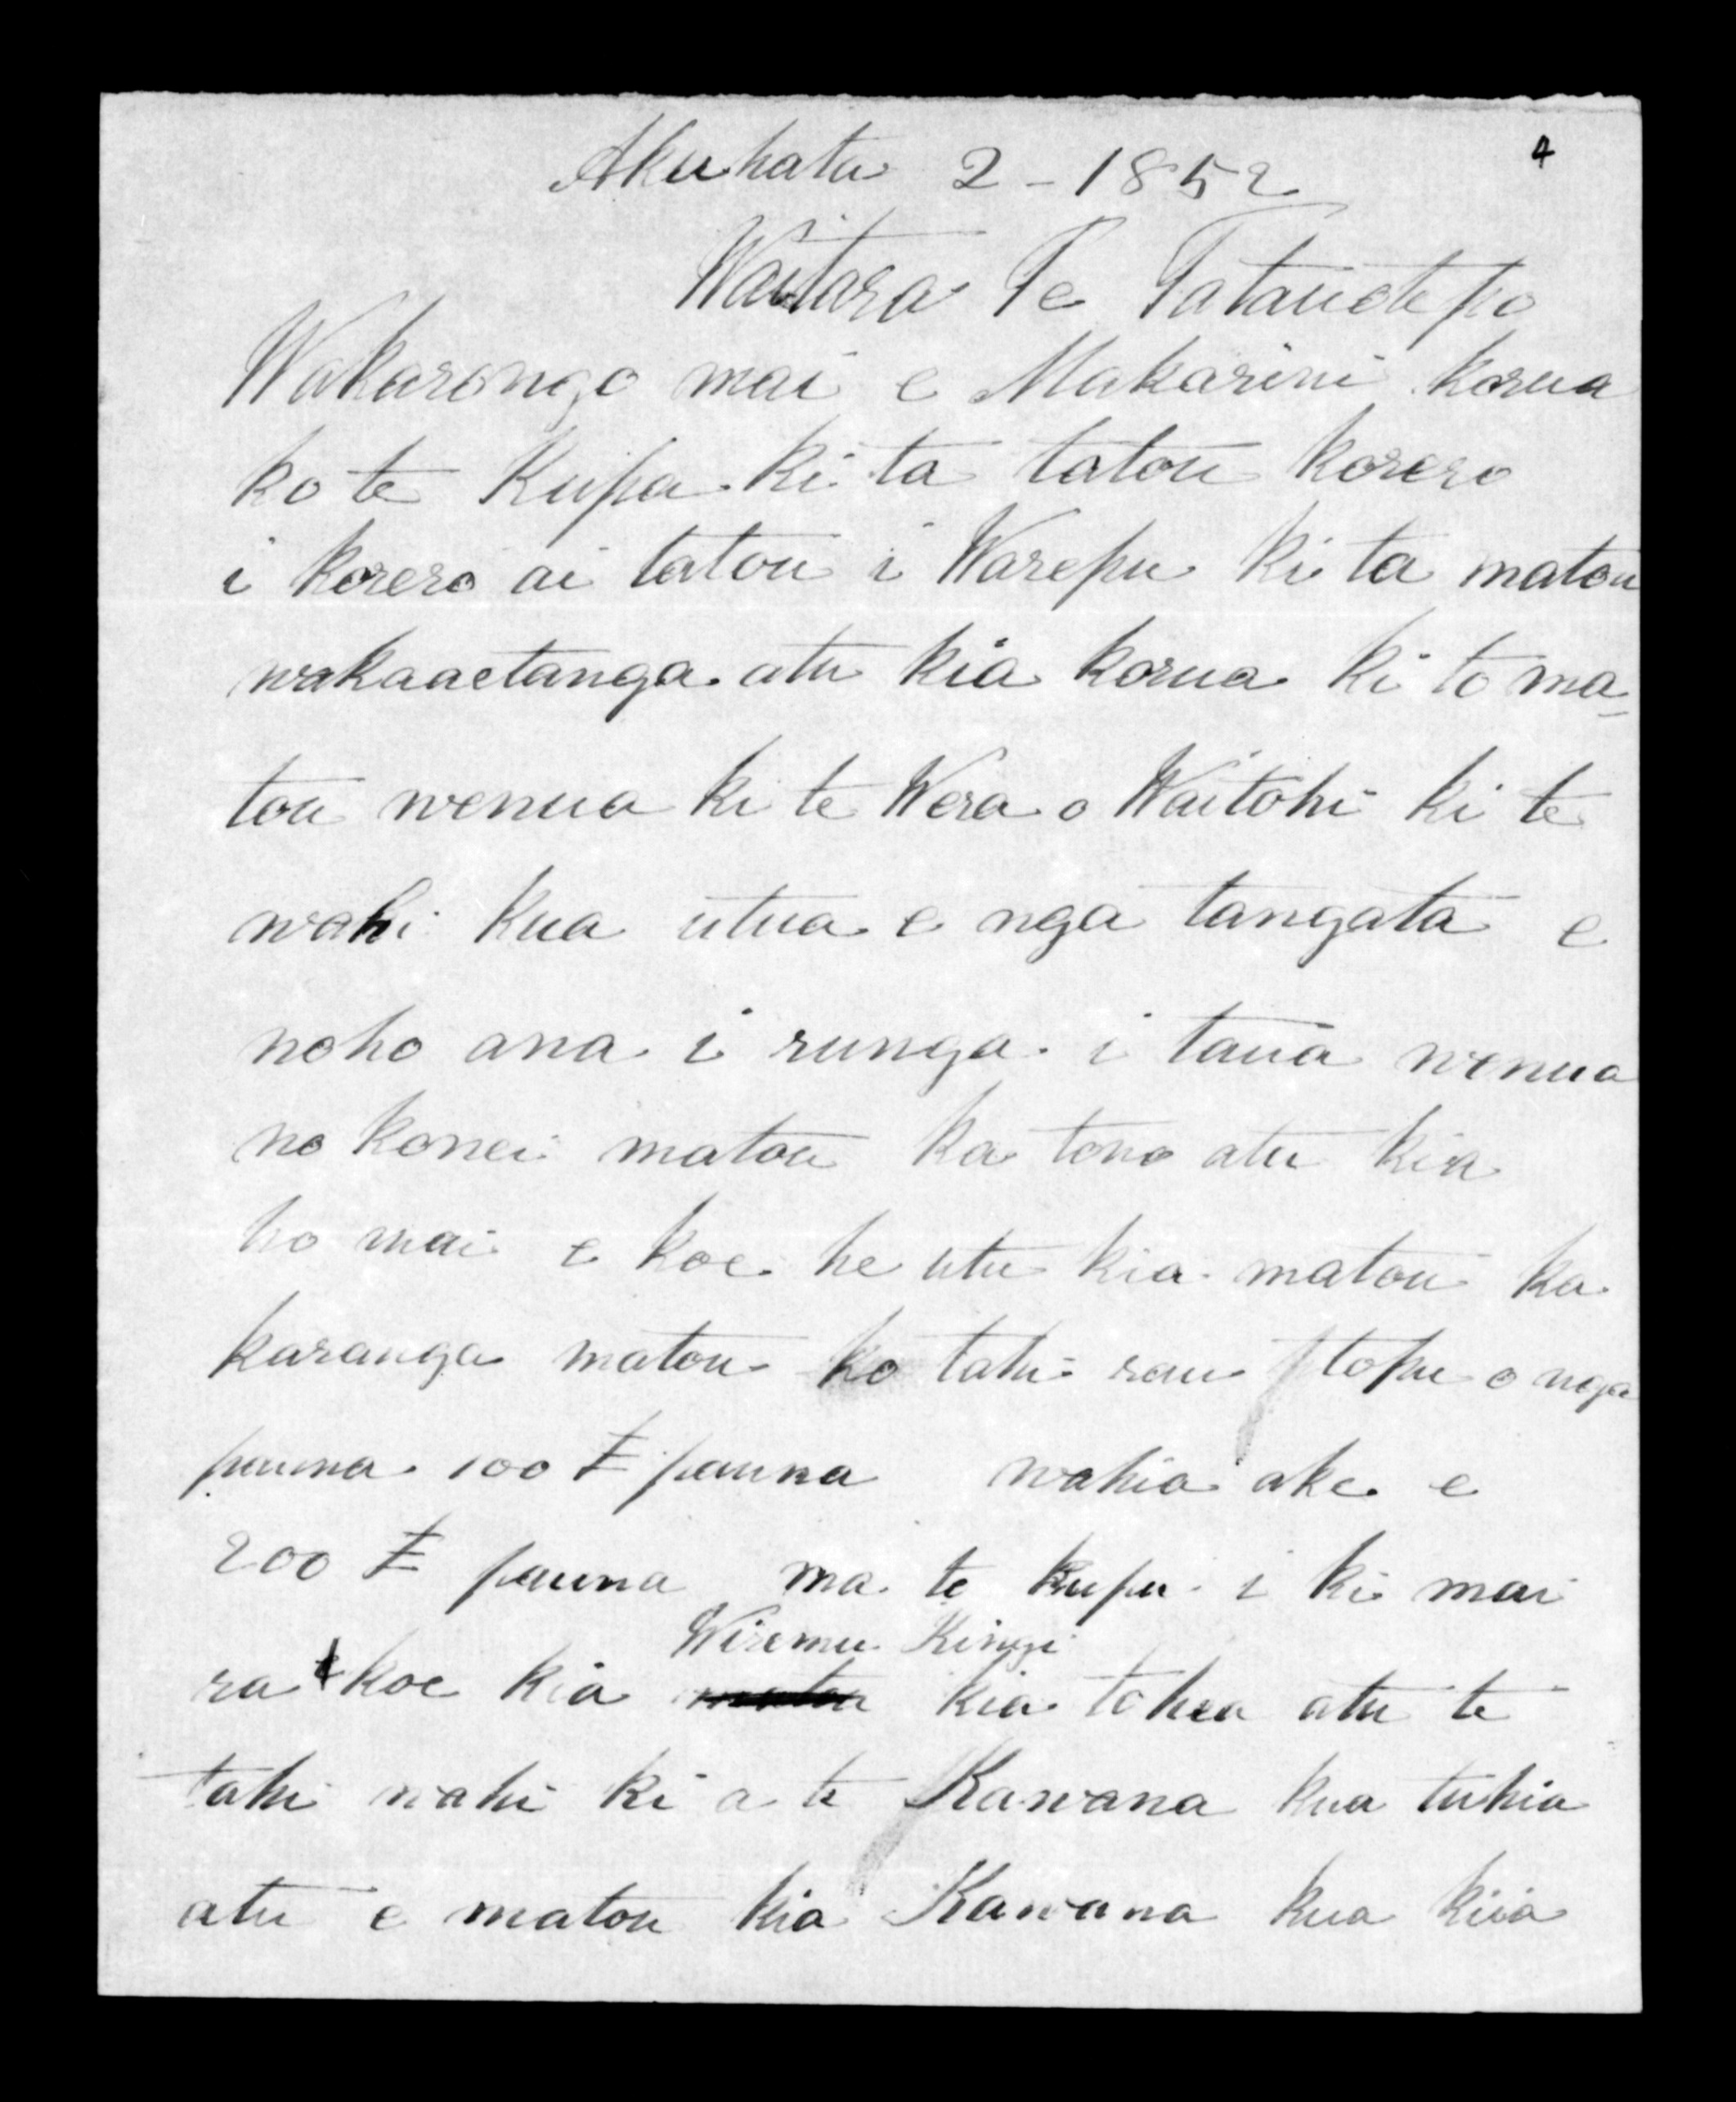 4
Akuhata 2 - 1852
Waitara Te Tatauotepo
Wakarongo mai e Makarini korua
ko te Kupa ki ta tatou korero
i korero ai tatou i Warepu ki ta matou
wakaaetanga atu kia korua ki to ma-
tou wenua ki te Wera o Waitohi ki te
wahi kua utua e nga tangata e
noho ana i runga i taua wenua
no konei matou ka tono atu kia
ho mai e koe he utu kia matou ka
karanga matou ko tahi rau topu o nga
pauna 100 £ pauna wahia ake e
200 £ pauna ma te kupu i ki mai
Wiremu Kingi
ra koe kia matou kia tohea atu te
tahi wahi ki a te Kawana kua tuhia
atu e matou kia Kawana kua kiia